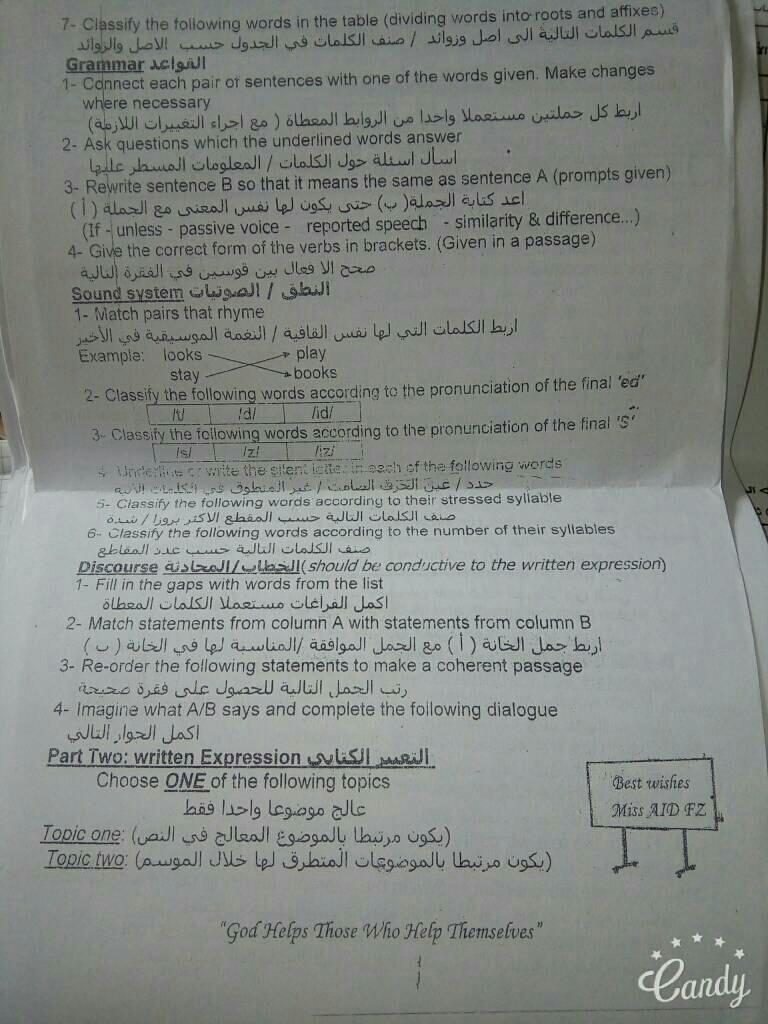 7- Classify the following words in the table (dividing words into roots and affixes)
قسم الكلمات التالية الى اصل وزوائد / صنف الكلمات في الجدول حسب الاصل والزوائد
Grammar القواعد
1- Connect each pair of sentences with one of the words given. Make changes
where necessary
اربط كل جملتين مستعملا واحدا من الروابط المعطاة ( مع اجراء التغييرات اللازمة)
2- Ask questions which the underlined words answer
اسأل اسئلة حول الكلمات / المعلومات المسطر عليها
3- Rewrite sentence B so that it means the same as sentence A (prompts given)
اعد كتابة الجملة( ب) حتى يكون لها نفس المعنى مع الجملة ( أ )
(If - unless - passive voice - reported speech - similarity & difference...)
4- Give the correct form of the verbs in brackets. (Given in a passage)
صحح الا فعال بين قوسين في الفقرة التالية
Sound system النطق / الصوتيات
1- Match pairs that rhyme
اربط الكلمات التي لها نفس القافية / النغمة الموسيقية في الأخير
Example: looks play
stay books
2- Classify the following words according to the pronunciation of the final 'ed'
/t/ /d/ /id/
3- Classify the following words according to the pronunciation of the final 'S'
/s/ /z/ /iz/
4- Underline or write the silent letter in each of the following words
حدد / عين الحرف الصامت / غير المنطوق في الكلمات الاتية
5- Classify the following words according to their stressed syllable
صنف الكلمات التالية حسب المقطع الاكثر بروزا / شدة
6- Classify the following words according to the number of their syllables
صنف الكلمات التالية حسب عدد المقاطع
Discourse الخطاب/المحادثة (should be conductive to the written expression)
1- Fill in the gaps with words from the list
اكمل الفراغات مستعملا الكلمات المعطاة
2- Match statements from column A with statements from column B
اربط جمل الخانة ( أ ) مع الجمل الموافقة /المناسبة لها في الخانة ( ب )
3- Re-order the following statements to make a coherent passage
رتب الجمل التالية للحصول على فقرة صحيحة
4- Imagine what A/B says and complete the following dialogue
اكمل الحوار التالي
Part Two: written Expression التعبير الكتابي
Choose ONE of the following topics
عالج موضوعا واحدا فقط
Topic one: (يكون مرتبطا بالموضوع المعالج في النص)
Topic two: (يكون مرتبطا بالموضوعات المتطرق لها خلال الموسم)
Best wishes
Miss AID FZ
"God Helps Those Who Help Themselves"
Candy